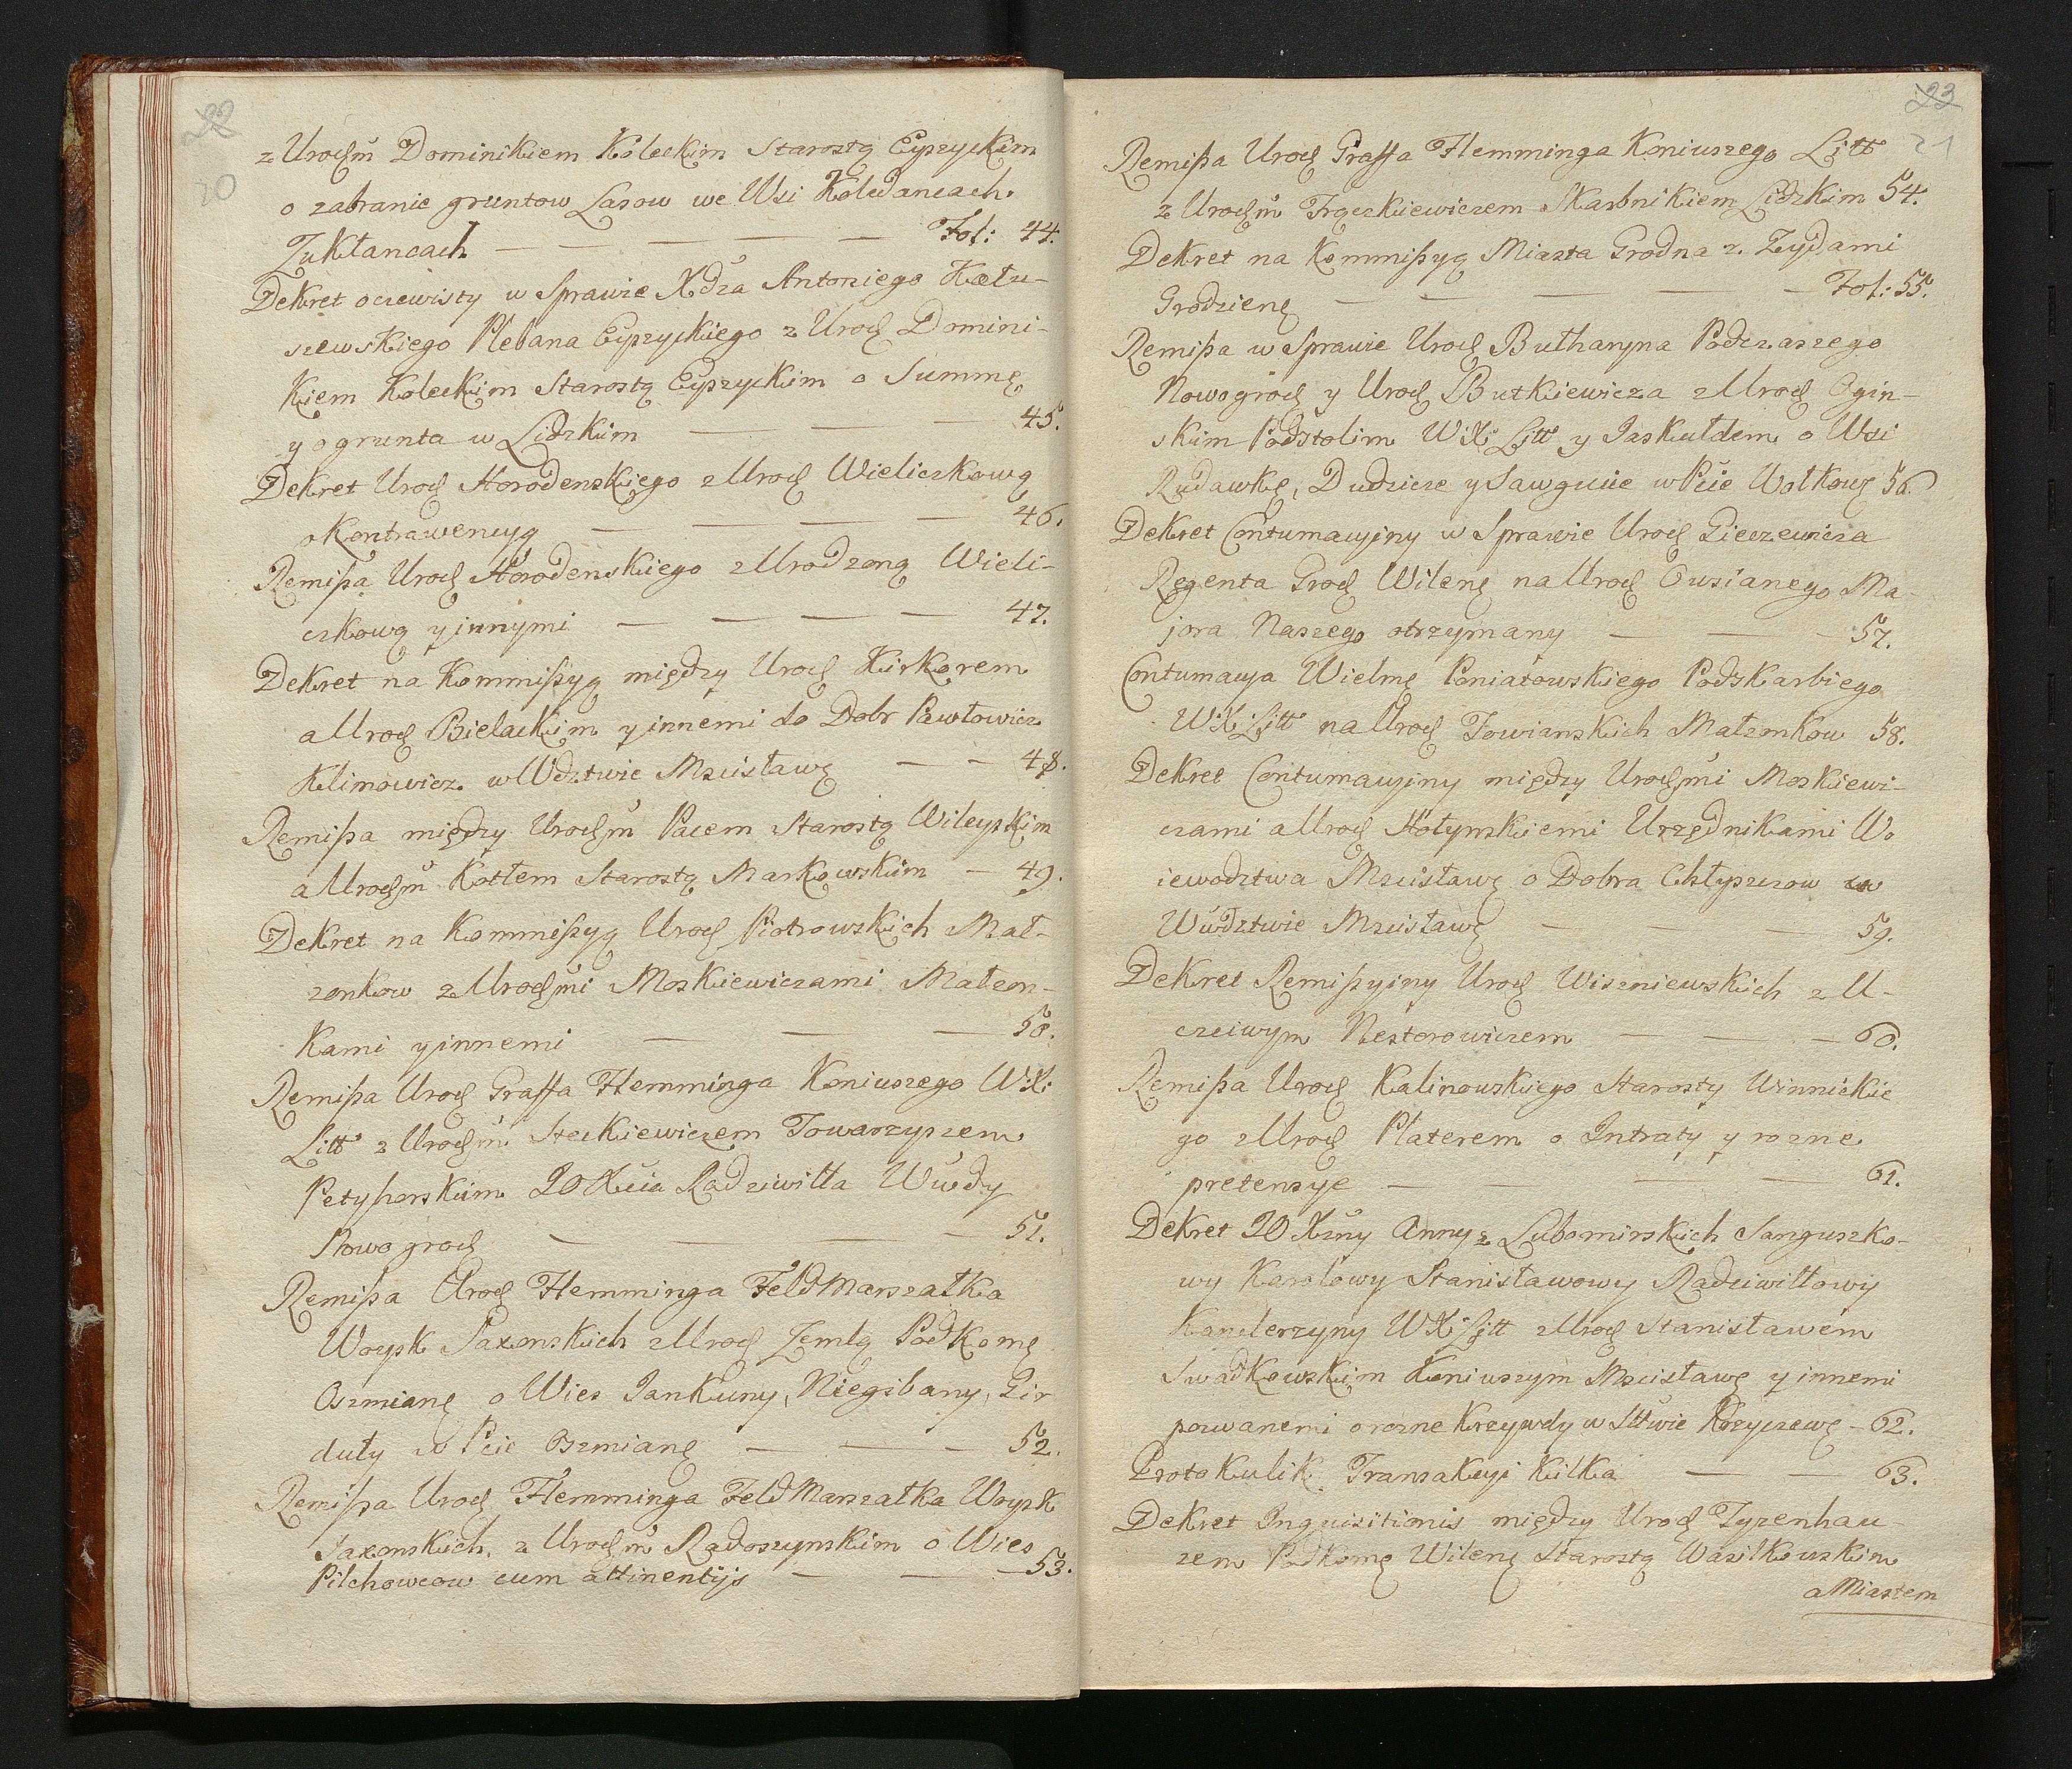 22
20
z Urodzm Dominikiem Koleckim Starostą Eyszyckim
o zabranie gruntow Lasow we Wsi Koledancach
Zukłancach — — — — Fol: 44.
Dekret oczewisty w Sprawie Xdza Antoniego Hału-
szewskiego Plebana Eyszyckiego z Urodz Domini-
kiem Koleckim Starostą Eyszyckim o Summę
y o grunta w Lidzkim — — — 45.
Dekret Urodz Horodenskiego z Urodz Wieliczkową
o Kontrawencyą — — — — 46.
Remissa Urodz Horodenskiego z Urodzoną Wieli-
czkową y innymi — — — — 47.
Dekret na Kommissyą między Urodz Kirkorem
a Urodz Bielackim y innemi do Dobr Pawłowicz
Klimowicz w Wdztwie Mscisławę — — 48.
Remissa między Urodzm Pacem Starostą Wileyskim
a Urodzm Kotłem Starostą Markowskim — 49.
Dekret na Kommissyą Urodz Piotrowskich Mał-
zonkow z Urodzmi Moskiewiczami Małzon-
kami y innemi — — — 50.
Remissa Urodz Graffa Flemminga Koniuszego W:X:
Litt z Urodzm Steckiewiczem Towarzyszem
Petyhorskim JO Xcia Radziwiłła Wwdy
Nowogrodz — — — — 51.
Remissa Urodz Flemminga FeldMarszałka
Woysk Saxonskich z Urodz Zemłą Podkomę
Oszmianę o Wies Jankuny, Niegibany, Gir
duty w Pcie Oszmianę — — — 52.
Remissa Urodz Flemminga FeldMarszałka Woysk
Saxonskich z Urodzm Radoszynskim o Wies
Pilchowcow cum attinentijs — — — 53.
23
21
Remissa Urodz Graffa Flemminga Koniuszego Litt
z Urodzm Frąckiewiczem Skarbnikiem Lidzkim 54.
Dekret na Kommissyą Miasta Grodna z Zydami
Grodzienę — — — — — Fol: 55.
Remissa w Sprawie Urodz Butharyna Podczaszego
Nowogrodz y Urodz Butkiewicza z Urodz Ogin-
skim Podstolim W:X: Litt y Jaskułdem o Wsi
Rudawkę, Dudzicze y Sawgucie w Pcie Wołkowę 56
Dekret Contumacyjny w Sprawie Urodz Gieczewicza
Regenta Grodz Wilenę na Urodz Owsianego Ma-
jora Naszego otrzymany — — — 57.
Contumacya Wielmę Poniatowskiego Podskarbiego
W:X: Litt na Urodz Towianskich Małzonkow 58.
Dekret Contumacyjny między Urodzmi Moskiewi-
czami a Urodz Hołynskiemi Urzędnikami Wo
iewodztwa Mscisławę o Dobra Chłyszczow w
Wwdztwie Mscisławę — — — 59.
Dekret Remissyjny Urodz Wiszniewskich z U-
czciwym Nestorowiczem — — — 60.
Remissa Urodz Kalinowskiego Starosty Winnickie
go z Urodz Platerem o Intraty y rozne
pretensye — — — — 61.
Dekret JO Xzny Anny z Lubomirskich Sanguszko-
wy Karolowy Stanisławowy Radziwiłłowy
Kanclerzyny W X Litt z Urodz Stanisławem
Swadkowskim Koniuszym Mscisławę y innemi
pozwanemi o rozne Krzywdy w Sttwie Krzyczewę – 62.
Protokulik Transakcyi Kilka — — 63.
Dekret Inquisitionis między Urodz Tyzenhau
zem Podkomę Wilenę Starostą Wasilkowskim
a Miastem